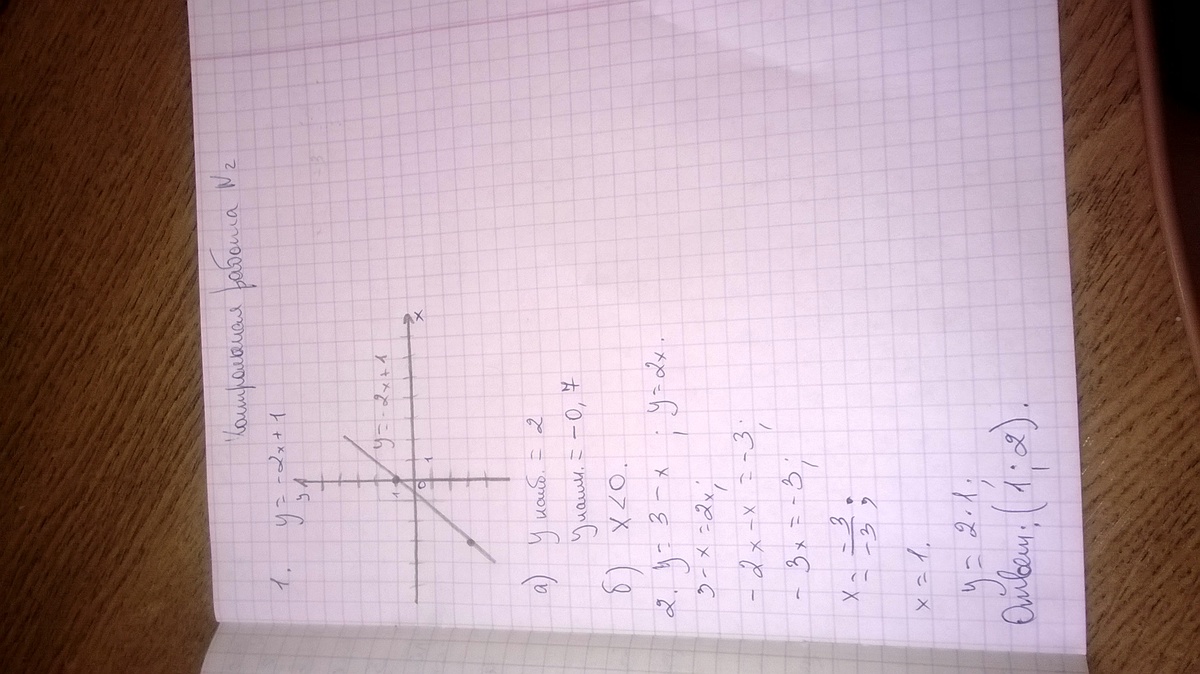 Контрольная работа N2
1. y = -2x + 1
y
y = -2x + 1
1
0 1
x
а) y наиб. = 2
y наим. = -0,7
б) x < 0.
2. y = 3 - x ; y = 2x.
3 - x = 2x;
- 2x - x = -3;
- 3x = -3;
x = -3/-3;
x = 1.
y = 2 · 1.
Ответ: (1; 2).